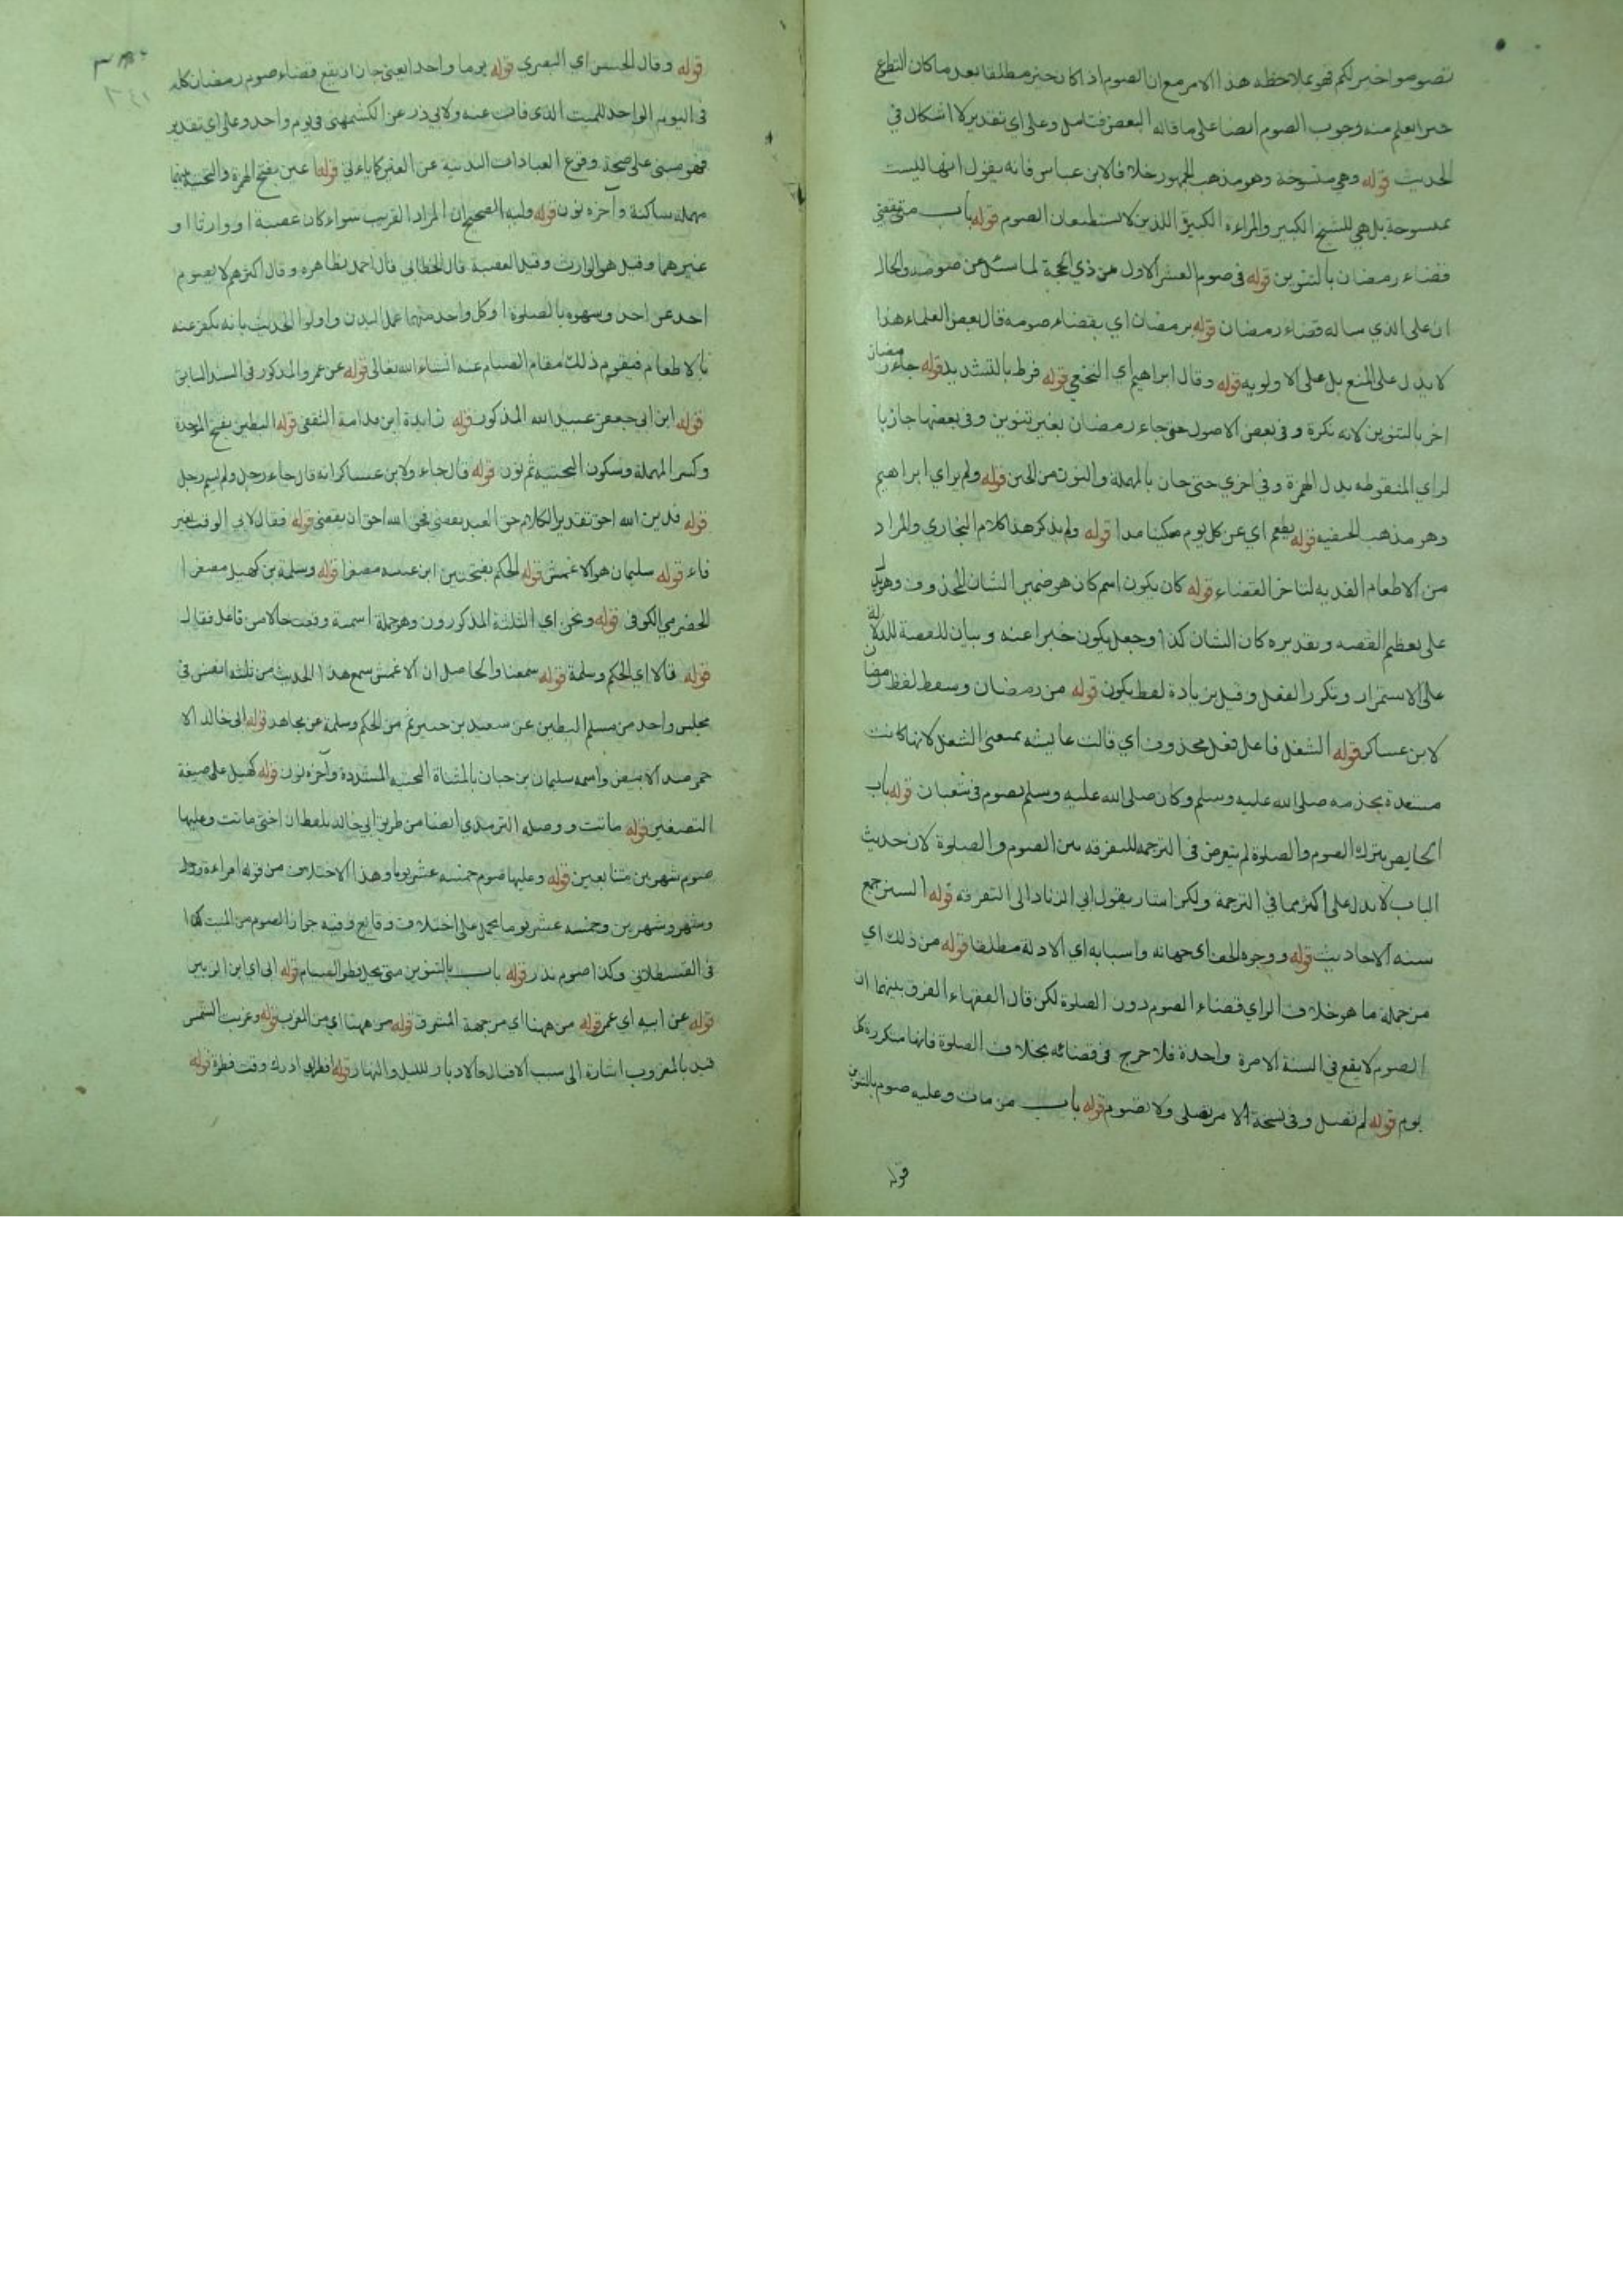 تصوموا خير لكم فهو بملاحظه هذا الامر مع ان الصوم اذا كان خير مطلقا بعد ما كان التطوع
خيرا يعلم منه وجوب الصوم ايضا على ما قاله البعض فتامل وعلى اي تقدير لا اشكال في
الحديث قوله وهي منسوخة وهو مذهب الجمهور خلافا لابن عباس فانه يقول انها ليست
بمنسوخة بل هي للشيخ الكبير والمراءة الكبيرة اللذين لا يستطيعان الصوم قوله باب متى يقضي
قضاء رمضان بالتنوين قوله في صوم العشر الاول من ذي الحجة لما سئل عن صومه والحال
ان على الذي ساله قضاء رمضان قوله برمضان اي بقضاء صومه قال بعض العلماء هذا
لا يدل على المنع بل على الاولويه قوله وقال ابراهيم اي النخعي قوله فرط بالتشديد قوله جاء رمضان
اخر بالتنوين لانه نكرة وفي بعض الاصول حتى جاء رمضان بغير تنوين وفي بعضها جاز با
لزاي المنقوطه بدل الهمزة وفي اخري حتى حان بالمهملة والنون من الحين قوله ولم يراي ابراهيم
وهو مذهب الحنفيه قوله يطعم اي عن كل يوم مسكينا مدا قوله ولم يذكر هذا كلام البخاري والمراد
من الاطعام الفديه لتاخر القضاء قوله كان يكون اسم كان هو ضمير الشان المحذوف وهو يدل
على تعظيم القصه وتقديره كان الشان كذا وجعل يكون خبرا عنه وبيان للقصة للدلالة
على الاستمرار وتكرر الفعل وقيل بزيادة لفظ يكون قوله من رمضان وسقط لفظ رمضان
لابن عساكر قوله الشغل فاعل فعل محذوف اي قالت عايشه يمنعني الشغل لانها كانت
مستعدة بخدمه صلى الله عليه وسلم وكان صلى الله عليه وسلم يصوم في شعبان قوله باب
الحايض يترك الصوم والصلوة لم يتعرض في الترجمه للتفرقه بين الصوم والصلوة لان حديث
الباب لا يدل على اكثر مما في الترجمة ولكن اشار بقول ابي الزناد الى التفرقه قوله السنن جمع
سنه الاحاديث قوله ووجوه الحق اي جهاته واسبابه اي الادلة مطلقا قوله من ذلك اي
من جملة ما هو خلاف الراي قضاء الصوم دون الصلوة لكن قال الفقهاء الفرق بينهما ان
الصوم لا يقع في السنة الا مرة واحدة فلا حرج في قضائه بخلاف الصلوة فانها متكررة كل
يوم قوله لم تصل وفي نسخة الامر تصلى ولا تصوم قوله باب من مات وعليه صوم بالتنوين
قوله
قوله وقال الحسن اي البصري قوله يوما واحدا يعني جاز ان يقع قضاء صوم رمضان كله
في اليوم الواحد للميت الذي فات عنه ولابي ذر عن الكشمهني في يوم واحد وعلى اي تقدير
فهو مبني على صحة وقوع العبادات البدنية عن الغير كما ياءتي قوله اعين بفتح الهمزة والتحتية بينهما
مهملة ساكنة وآخره نون قوله وليه الصحيح ان المراد القريب سواء كان عصبة او وارثا او
غيرهما وقيل هو الوارث وقيل العصبة قال الخطابي قال احمد بظاهره وقال اكثرهم لا يصوم
احد عن احد وشبهوه بالصلوة اذ كل واحد منهما عمل البدن واولوا الحديث بانه يكفر عنه
بالاطعام فيقوم ذلك مقام الصيام عنه انشاء الله تعالى قوله عن عمرو المذكور في السند السابق
قوله ابن ابي جعفر عبيد الله المذكور قوله زايدة ابن قدامة الثقفي قوله البطين بفتح الموحدة
وكسر المهملة وسكون التحتيه ثم نون قوله قال جاء ولابن عساكر انه قال جاء رجل ولم يسم رجل
قوله فدين الله احق تقدير الكلام حق العبد يقضى فحق الله احق ان يقضى قوله فقال لابي الوقت بغير
فاء قوله سليمان هو الاعمش قوله الحكم بفتحتين ابن عتيبه مصغرا قوله وسلمة بن كهيل مصغرا
الحضرمي الكوفي قوله ونحن اي الثلثة المذكورون وهو جملة اسمية وقعت حالا من فاعل فقال
قوله قالا اي الحكم وسلمة قوله سمعنا والحاصل ان الاعمش سمع هذا الحديث من ثلثة انفس في
مجلس واحد من مسلم البطين عن سعيد بن جبير ثم من الحكم وسلمة عن مجاهد قوله ابي خالد الا
حمر ضد الابيض واسمه سليمان بن حبان بالمثناة التحتيه المشددة وآخره نون قوله كهيل على صيغة
التصغير قوله ماتت ووصله الترمذي ايضا من طريق ابي خالد بلفظ ان اختي ماتت وعليها
صوم شهرين متتابعين قوله وعليها صوم خمسه عشر يوما وهذا الاختلاف من قوله امراءة ورجل
وشهر وشهرين وخمسه عشر يوما يحمل على اختلاف وقايع وفيه جواز الصوم من الميت كذا
في القسطلاني وكذا صوم نذر قوله باب بالتنوين متى يحل فطر الصيام قوله ابي اي ابن الزبير
قوله عن ابيه اي عمر قوله من ههنا اي من جهة المشرق قوله من ههنا اي من المغرب قوله وغربت الشمس
قيد بالغروب اشارة الى سبب الاقبال والادبار لليل والنهار قوله افطر اي ادرك وقت فطرة قوله